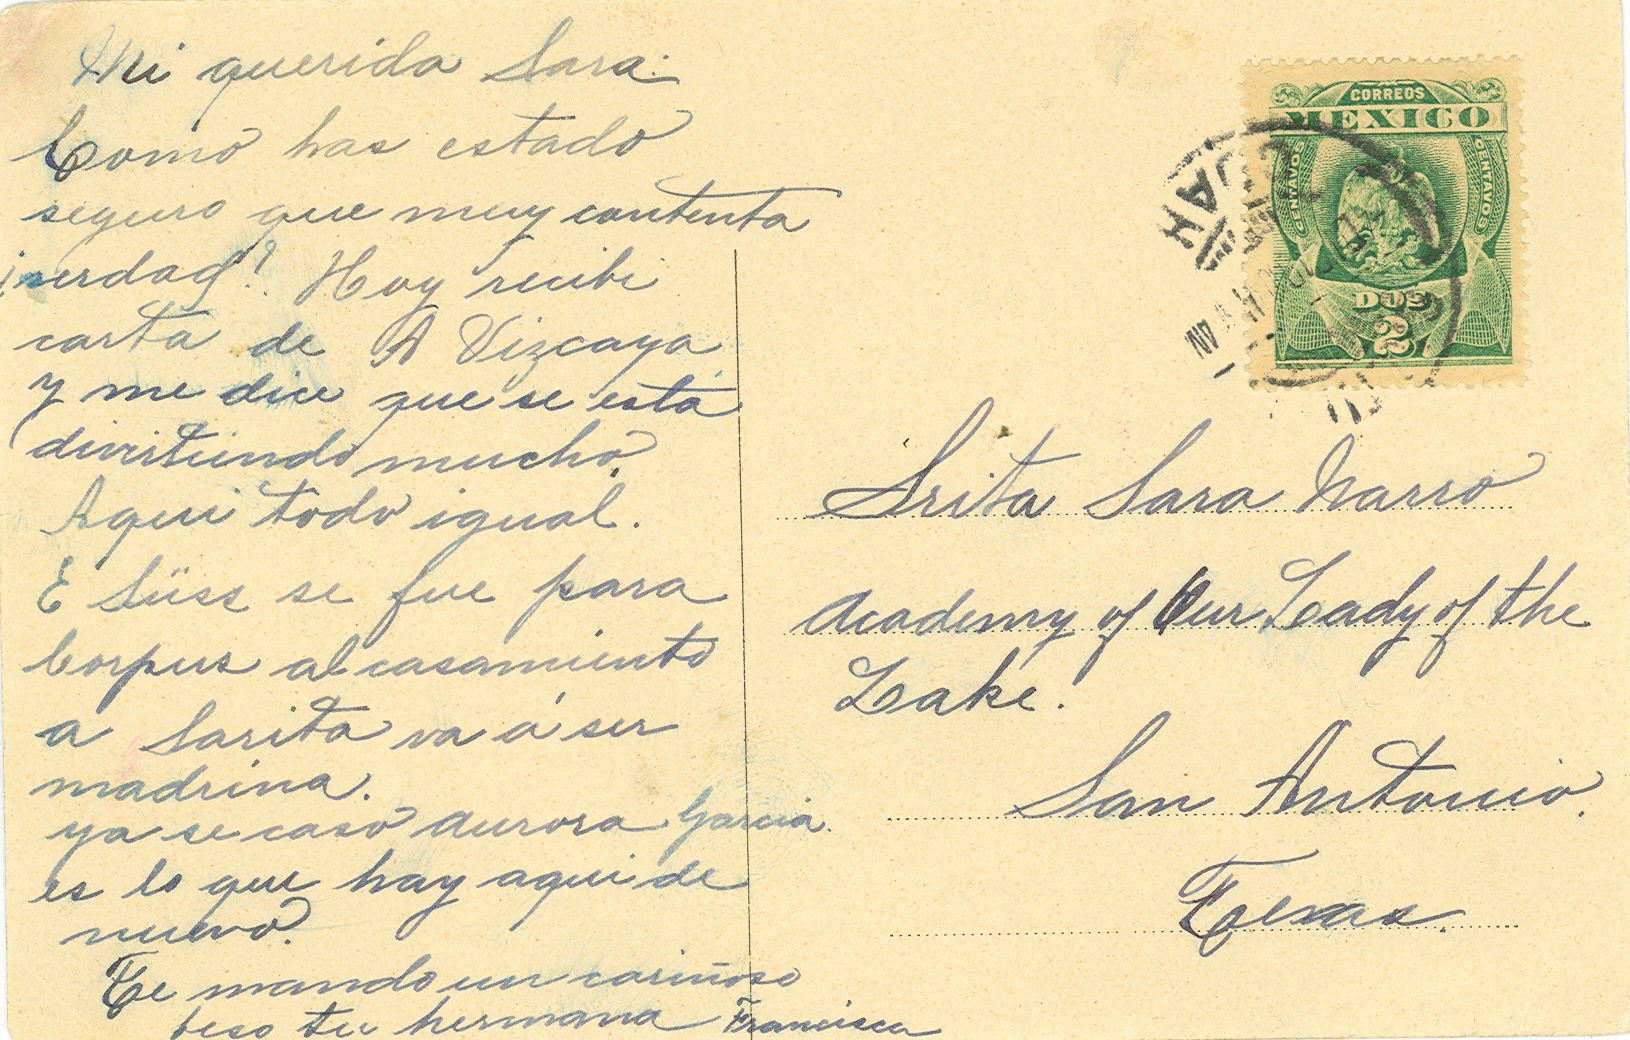 Mi querida Sara:
Como has estado
seguro que muy contenta
¿verdad? Hoy recibi
carta de A Vizcaya
y me dice que se está
divirtiendo mucho.
Aqui todo igual.
E Süss se fue para
Corpus al casamiento
a Sarita va á ser
madrina.
ya se casó Aurora Garcia.
es lo que hay aqui de
nuevo.
Te mando un cariñoso
beso tu hermana Francisca
CORREOS
MEXICO
CENTAVOS
CENTAVOS
DOS
2
COAH
Srita Sara Narro
Academy of Our Lady of the
Lake.
San Antonio.
Texas.